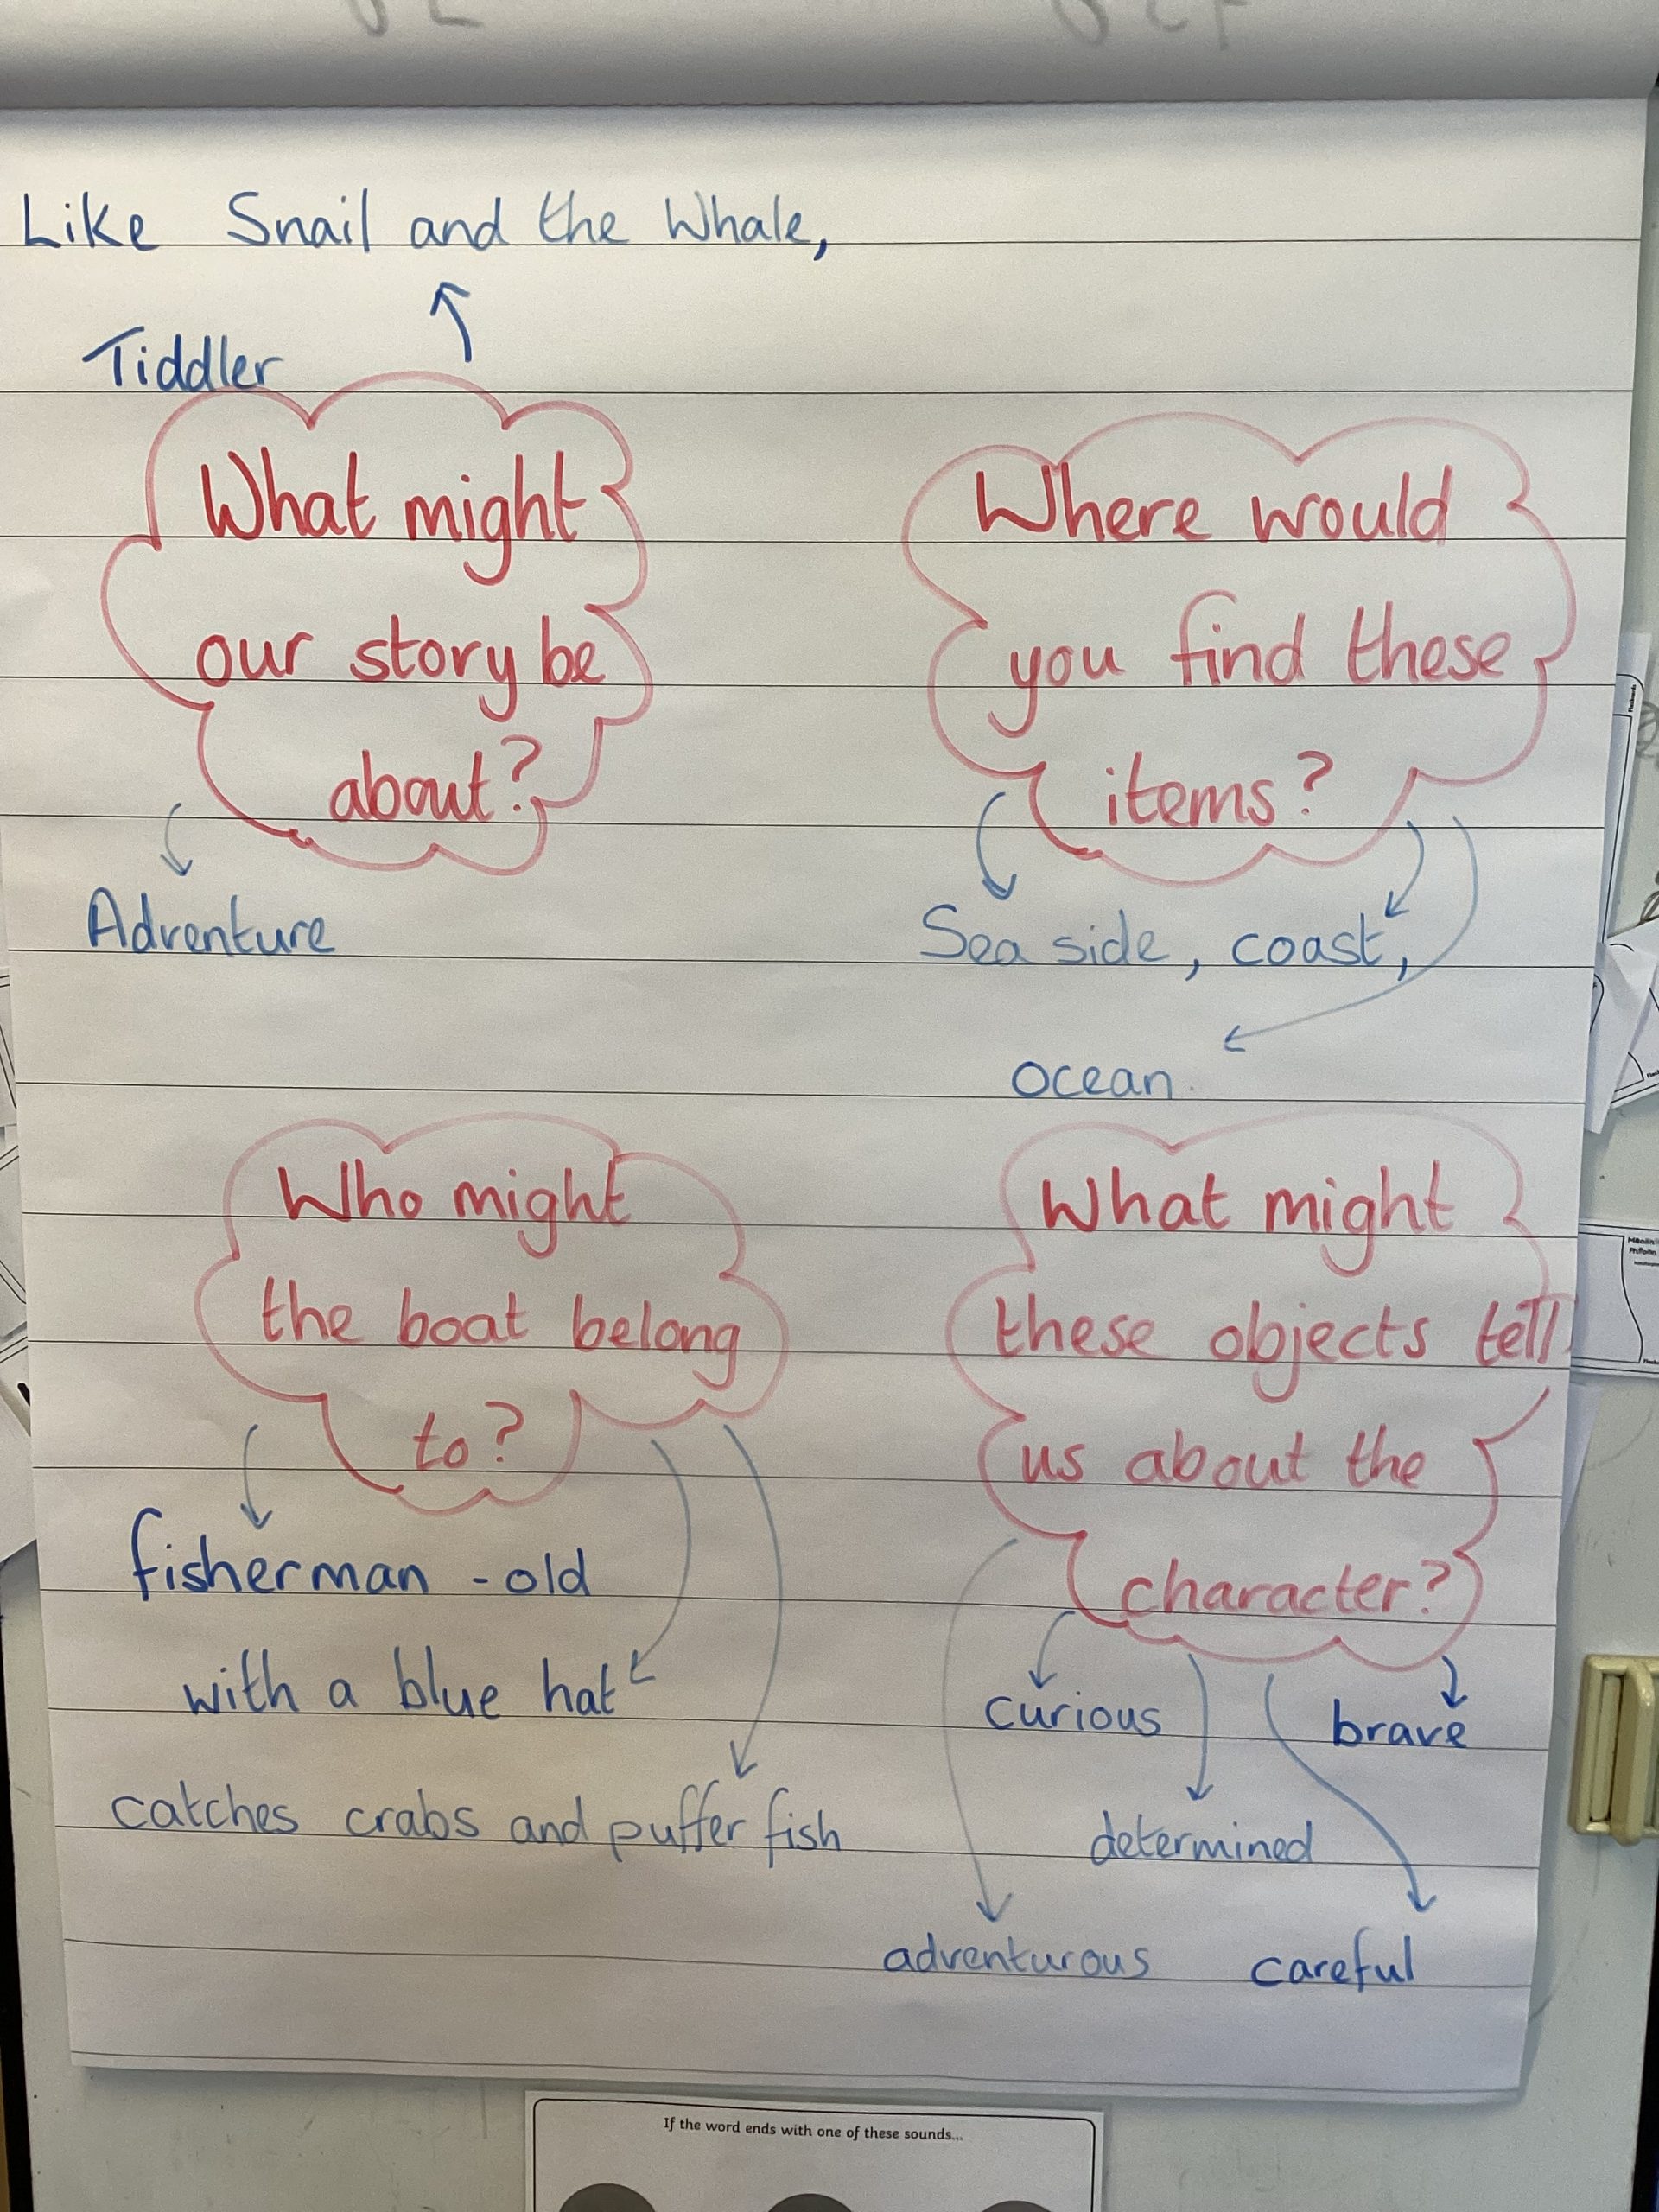 Like Snail and the Whale,
Tiddler
What might
our story be
about?
Adventure
Where would
you find these
items?
Sea side, coast,
ocean.
Who might
the boat belong
to?
fisherman - old
with a blue hat
catches crabs and puffer fish
What might
these objects tell
us about the
character?
curious
brave
determined
adventurous
careful
If the word ends with one of these sounds...